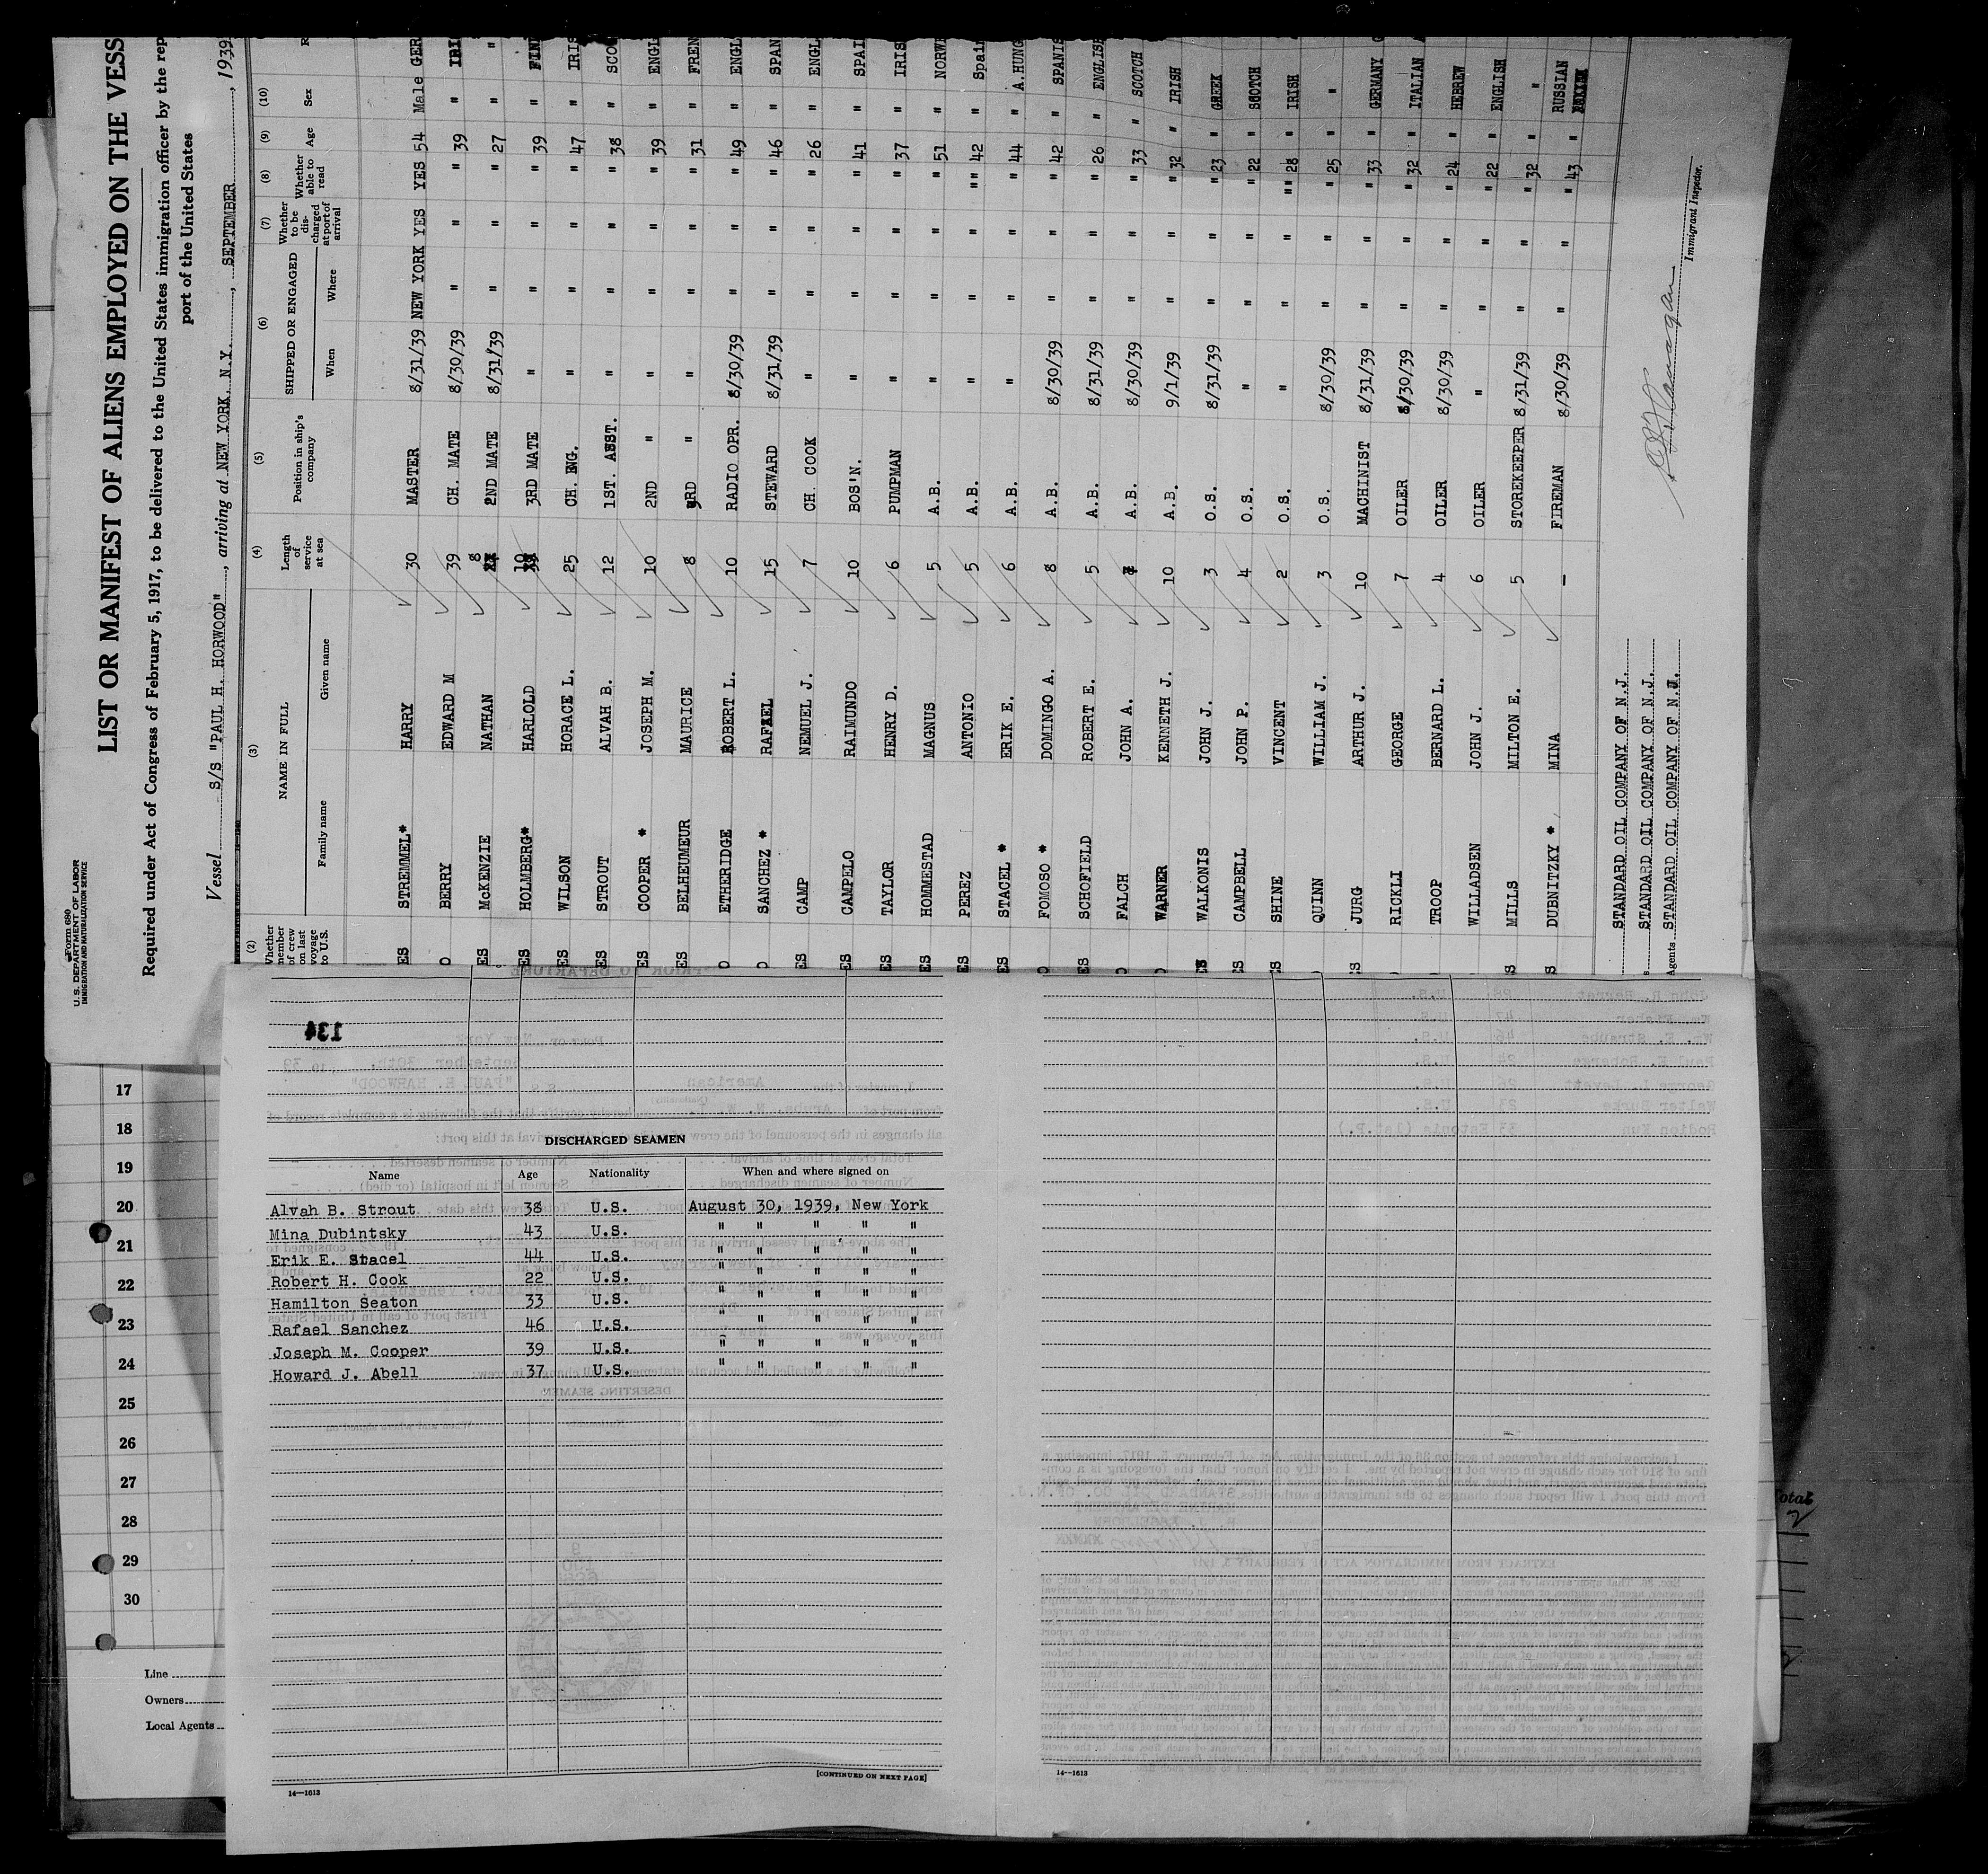 Form 680
U. S. DEPARTMENT OF LABOR
IMMIGRATION AND NATURALIZATION SERVICE
LIST OR MANIFEST OF ALIENS EMPLOYED ON THE VESS
Required under Act of Congress of February 5, 1917, to be delivered to the United States immigration officer by the rep
port of the United States
Vessel S/S "PAUL H. HORWOOD", arriving at NEW YORK, N.Y., SEPTEMBER, 1939
(2) (3) (4) (5) (6) (7) (8) (9) (10)
Whether member of crew on last voyage to U.S. NAME IN FULL Family name Given name Length of service at sea Position in ship's company SHIPPED OR ENGAGED When Where Whether to be discharged at port of arrival Whether able to read Age Sex R
ES STREMMEL* HARRY 30 MASTER 8/31/39 NEW YORK YES YES 54 Male GER
O BERRY EDWARD M 39 CH. MATE 8/30/39 " " " 39 " IRI
ES McKENZIE NATHAN 8 2ND MATE 8/31/39 " " " 27 " "
ES HOLMBERG* HARLOLD 10 3RD MATE " " " " 39 " FINN
ES WILSON HORACE L. 25 CH. ENG. " " " " 47 " IRIS
ES STROUT ALVAH B. 12 1ST. ASST. " " " " 38 " SCO
ES COOPER * JOSEPH M. 10 2ND " " " " " 39 " ENGL
ES BELHEUMEUR MAURICE 8 3RD " " " " " 31 " FREN
O ETHERIDGE ROBERT L. 10 RADIO OPR. 8/30/39 " " " 49 " ENGL
O SANCHEZ * RAFAEL 15 STEWARD 8/31/39 " " " 46 " SPAN
ES CAMP NEMUEL J. 7 CH. COOK " " " " 26 " ENGL
ES CAMPELO RAIMUNDO 10 BOS'N. " " " " 41 " SPAI
ES TAYLOR HENRY D. 6 PUMPMAN " " " " 37 " IRIS
ES HOMMESTAD MAGNUS 5 A.B. " " " " 51 " NORWE
ES PEREZ ANTONIO 5 A.B. " " " "" 42 " Spai
ES STACEL * ERIK E. 6 A.B. " " " " 44 " A.HUNG
O FOMOSO * DOMINGO A. 8 A.B. 8/30/39 " " " 42 " SPANIS
ES SCHOFIELD ROBERT E. 5 A.B. 8/31/39 " " " 26 " ENGLISH
O FALCH JOHN A. A.B. 8/30/39 " " " 33 " SCOTCH
O WARNER KENNETH J. 10 A.B. 9/1/39 " " " 32 " IRISH
ES WALKONIS JOHN J. 3 O.S. 8/31/39 " " " 23 " GREEK
ES CAMPBELL JOHN P. 4 O.S. " " " " 22 " SCOTCH
ES SHINE VINCENT 2 O.S. " " " "" 28 " IRISH
QUINN WILLIAM J. 3 O.S. 8/30/39 " " " 25 " "
ES JURG ARTHUR J. 10 MACHINIST 8/31/39 " " " 33 " GERMANY
RICKLI GEORGE 7 OILER 8/30/39 " " " 32 " ITALIAN
TROOP BERNARD L. 4 OILER 8/30/39 " " " 24 " HEBREW
WILLADSEN JOHN J. 6 OILER " " " " 22 " ENGLISH
S MILLS MILTON E. 5 STOREKEEPER 8/31/39 " " " 32 " "
S DUBNITZKY * MINA – FIREMAN 8/30/39 " " " 43 " RUSSIAN
STANDARD OIL COMPANY OF N.J.
s STANDARD OIL COMPANY OF N.J.
Agents STANDARD OIL COMPANY OF N.J.
Immigrant Inspector.
134
DISCHARGED SEAMEN
Name Age Nationality When and where signed on
Alvah B. Strout 38 U.S. August 30, 1939, New York
Mina Dubintsky 43 U.S. " " " " "
Erik E. Stacel 44 U.S. " " " " "
Robert H. Cook 22 U.S. " " " " "
Hamilton Seaton 33 U.S. " " " " "
Rafael Sanchez 46 U.S. " " " " "
Joseph M. Cooper 39 U.S. " " " " "
Howard J. Abell 37 U.S. " " " " "
[CONTINUED ON NEXT PAGE]
14—1613
14—1613
17
18
19
20
21
22
23
24
25
26
27
28
29
30
Line
Owners
Local Agents
Total
2